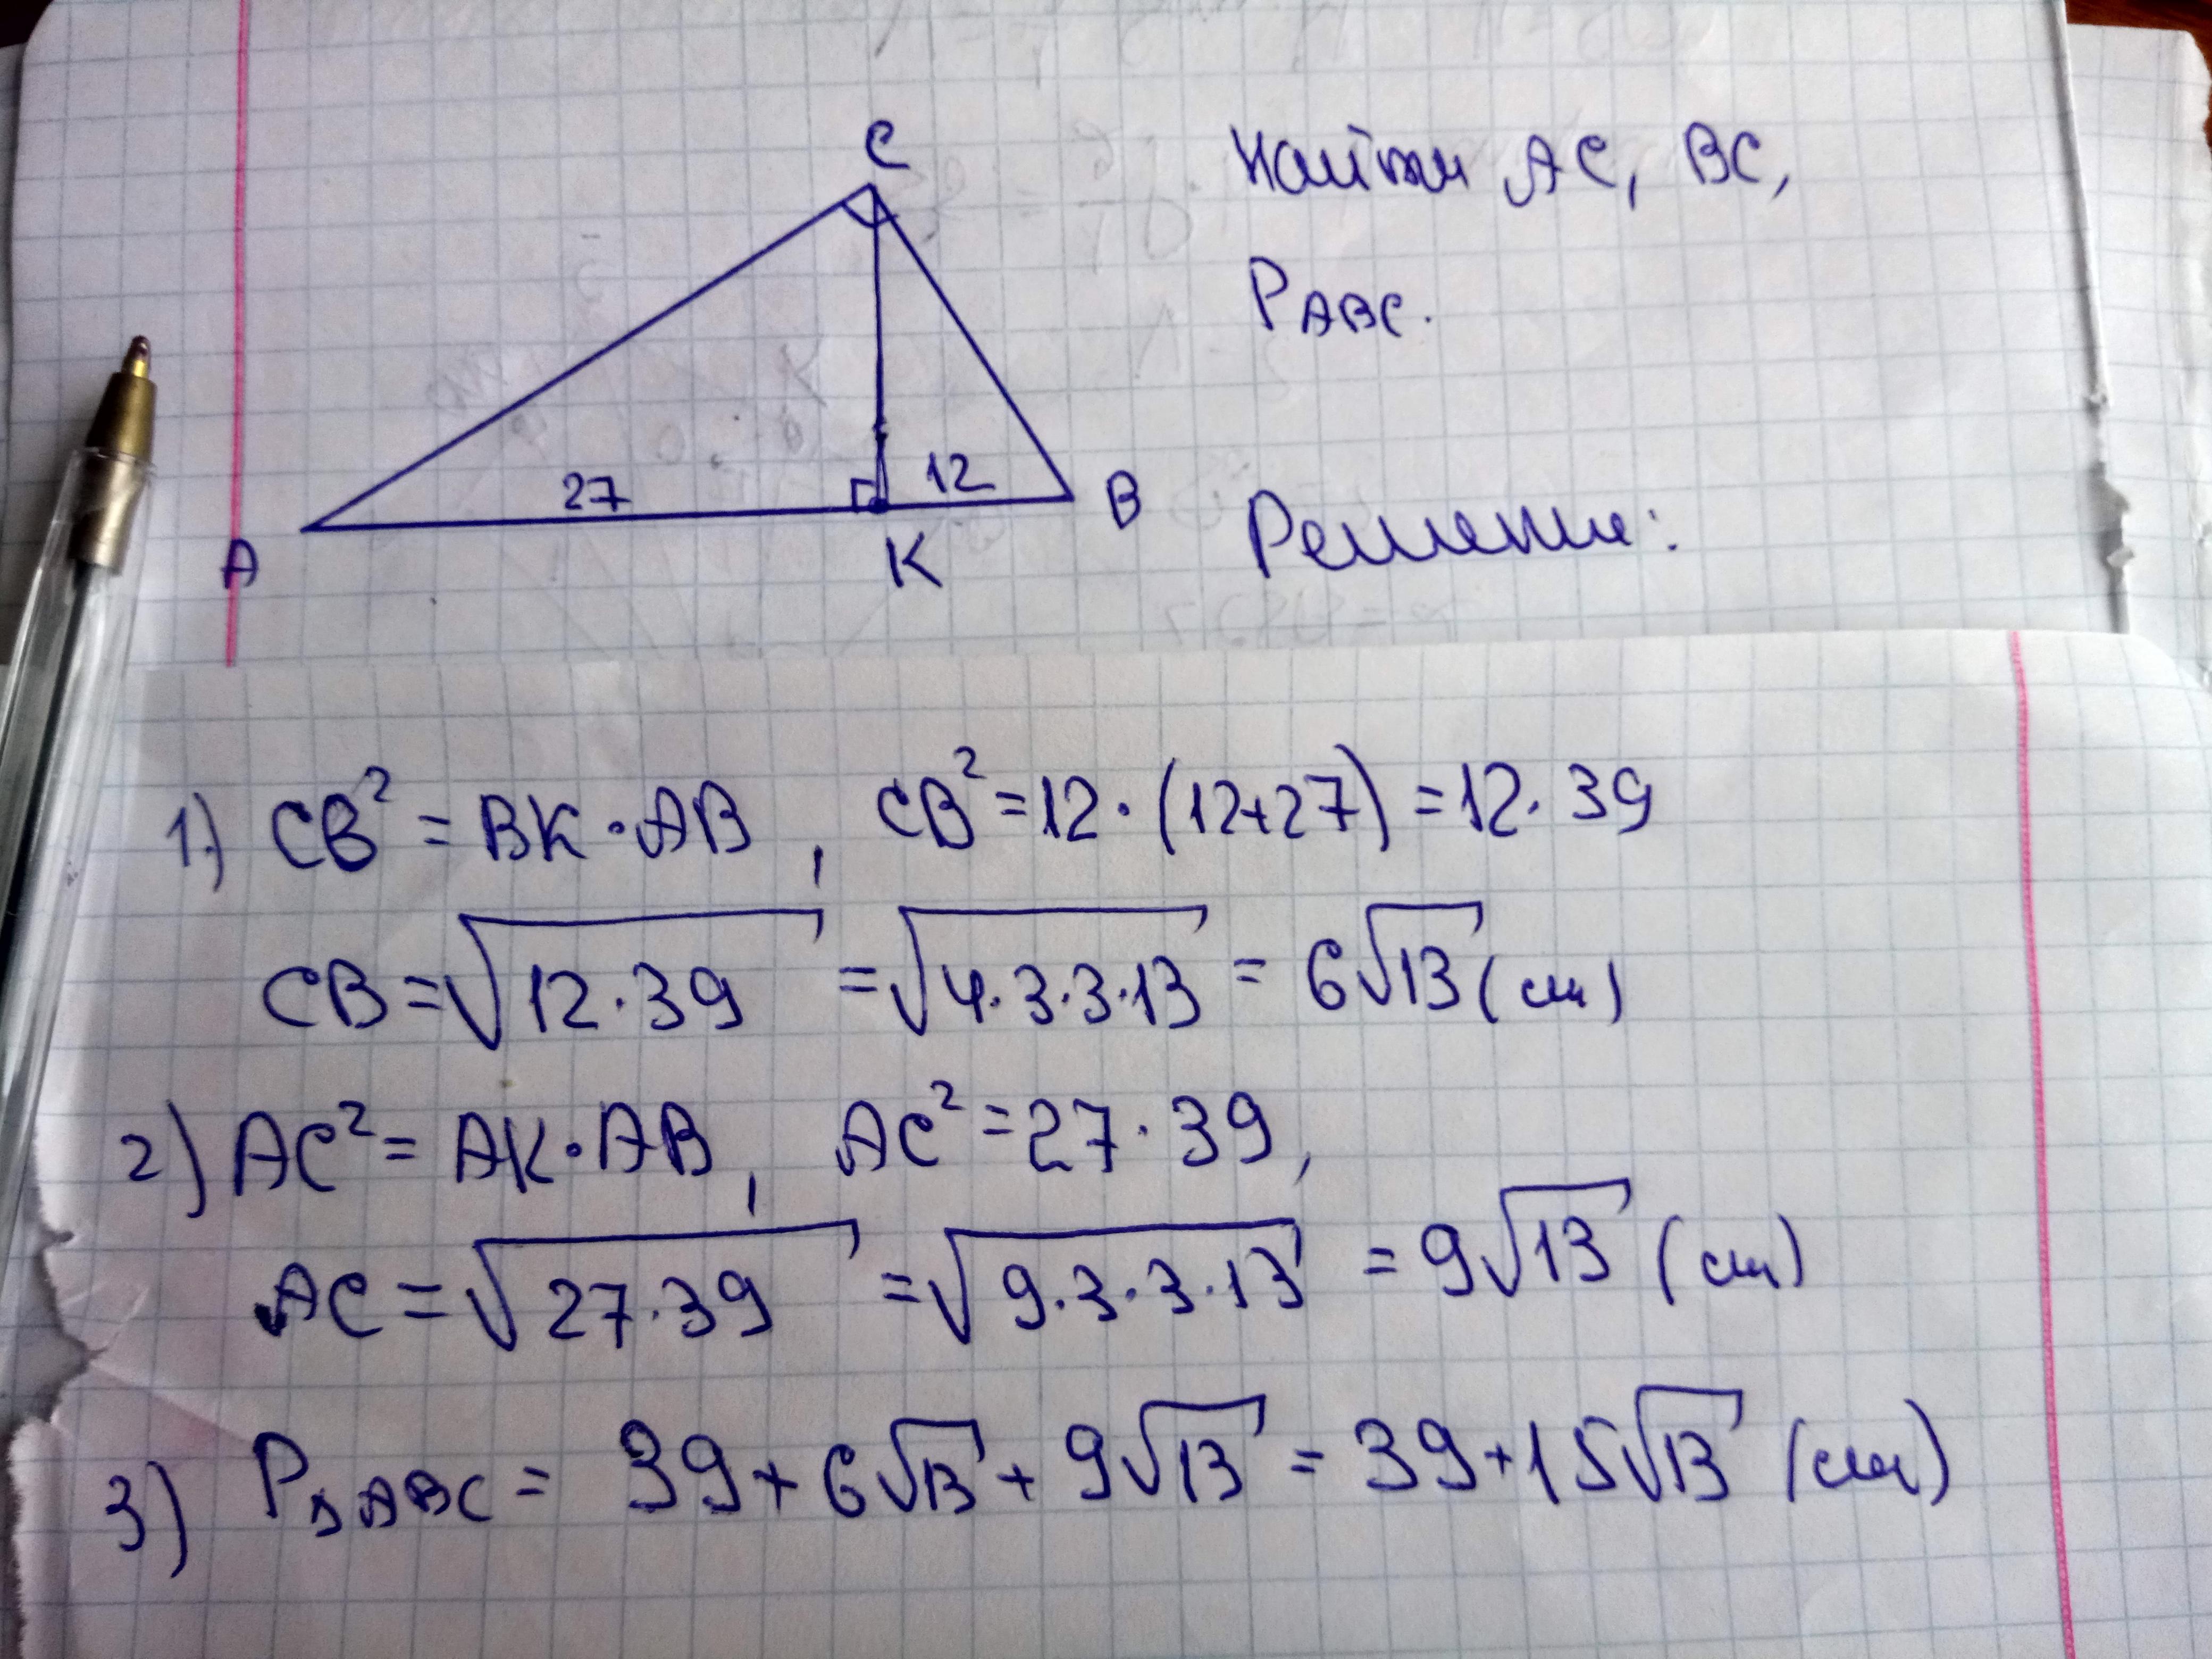 C
Найти AC, BC,
P ABC.
27
12
A
K
B
Решение:
1) CB² = BK · AB , CB² = 12 · (12+27) = 12 · 39
CB = √12 · 39 = √4 · 3 · 3 · 13 = 6√13 (см)
2) AC² = AK · AB , AC² = 27 · 39 ,
AC = √27 · 39 = √9 · 3 · 3 · 13 = 9√13 (см)
3) P△ABC = 39 + 6√13 + 9√13 = 39 + 15√13 (см)